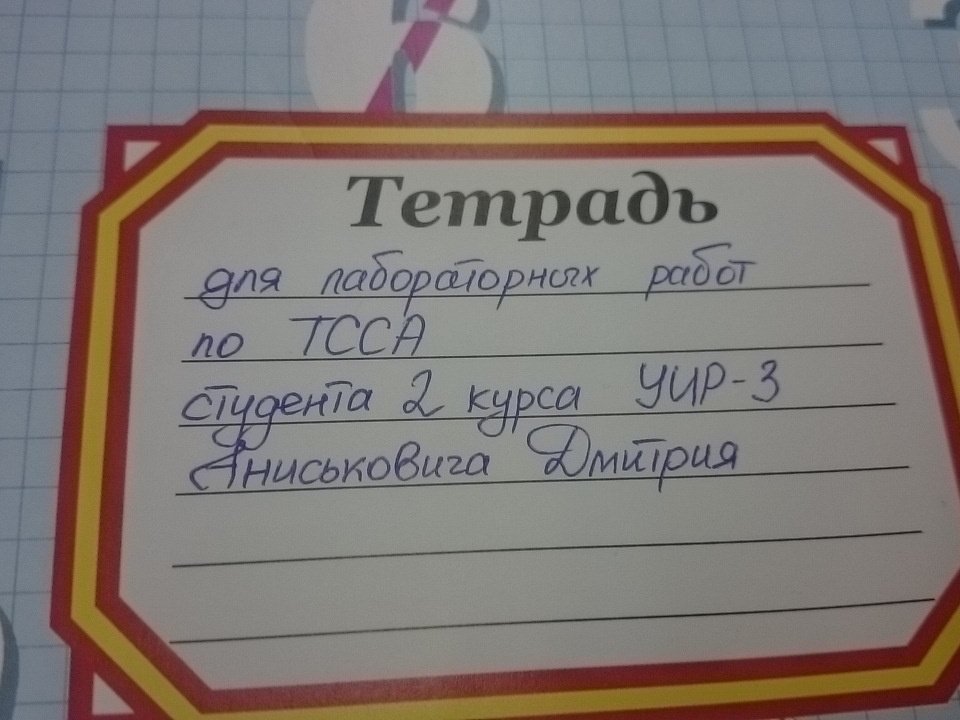 Тетрадь
для лабораторных работ
по ТССА
студента 2 курса УИР-3
Аниськовича Дмитрия